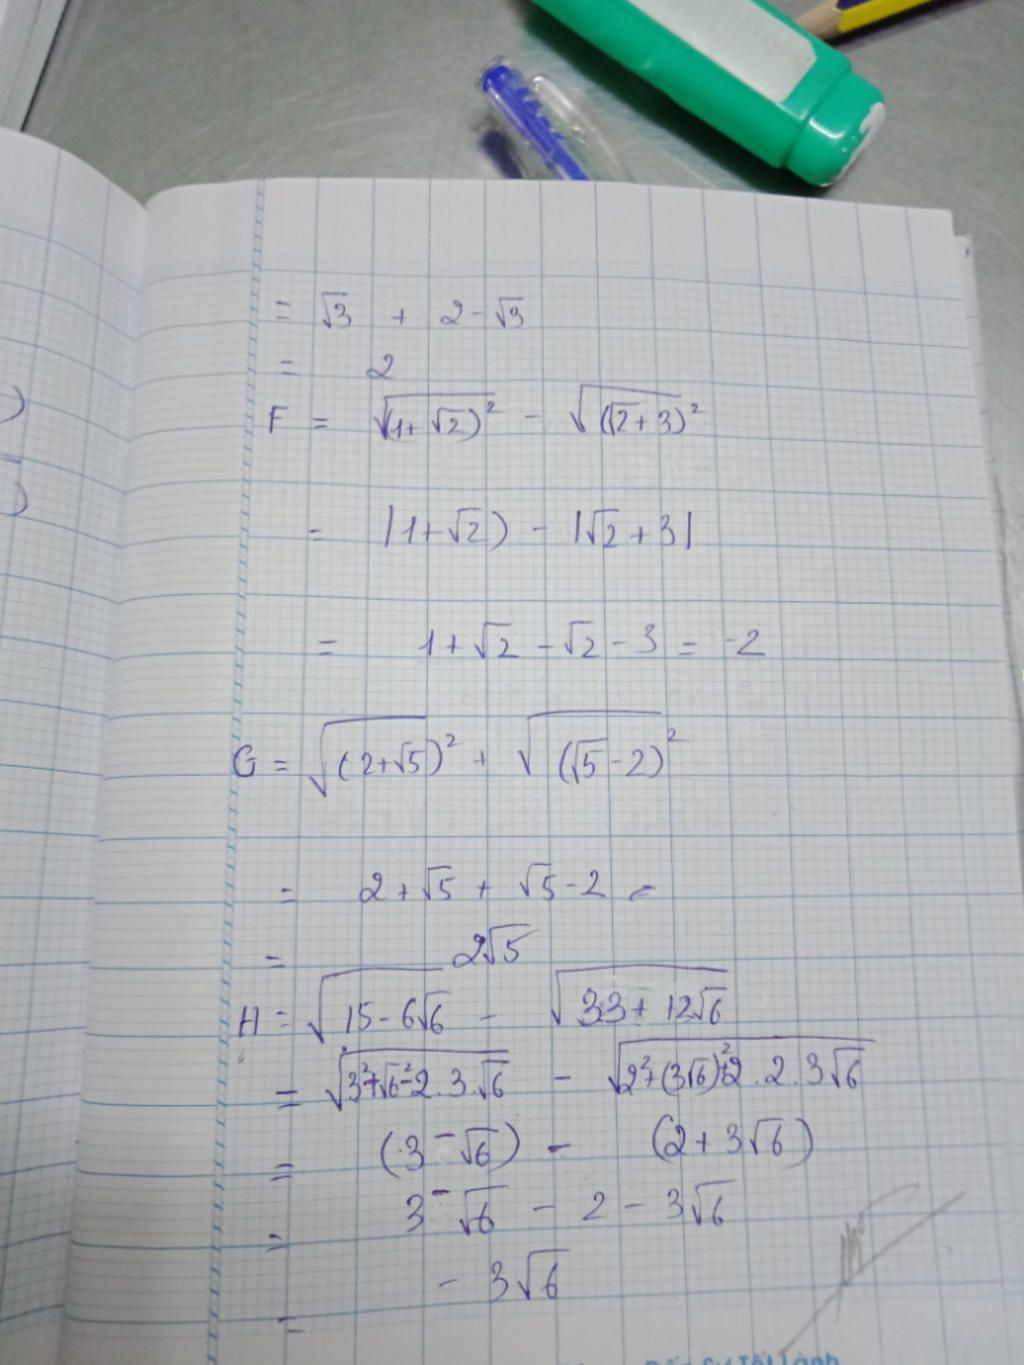 = √3 + 2 - √3
= 2
F = √(1+√2)² - √(√2+3)²
= |1+√2) - |√2+3|
= 1+√2 - √2 - 3 = -2
G = √(2+√5)² + √(√5-2)²
= 2+√5 + √5-2 =
= 2√5
H = √15-6√6 - √33+12√6
= √3²+√6²-2.3.√6 - √2²+(3√6)²+2.2.3√6
= (3-√6) - (2+3√6)
= 3-√6 - 2 - 3√6
= - 3√6